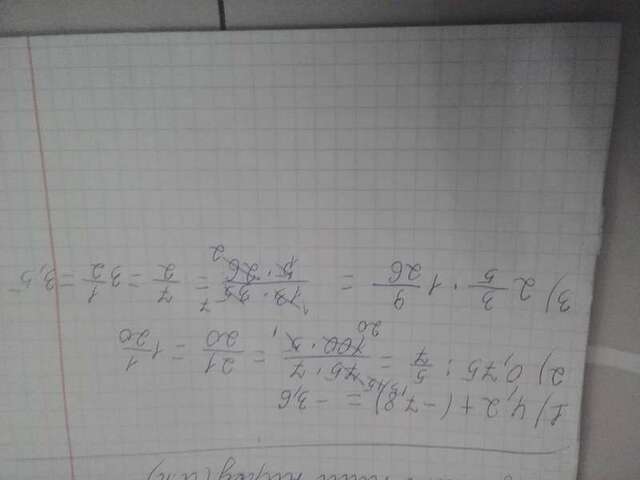 1) 4,2 + (-7,8) = -3,6
2) 0,75 : 5/7 = 75·7/100·5 = 21/20 = 1 1/20
3) 2 3/5 · 1 9/26 = 13·35/5·26 = 7/2 = 3 1/2 = 3,5